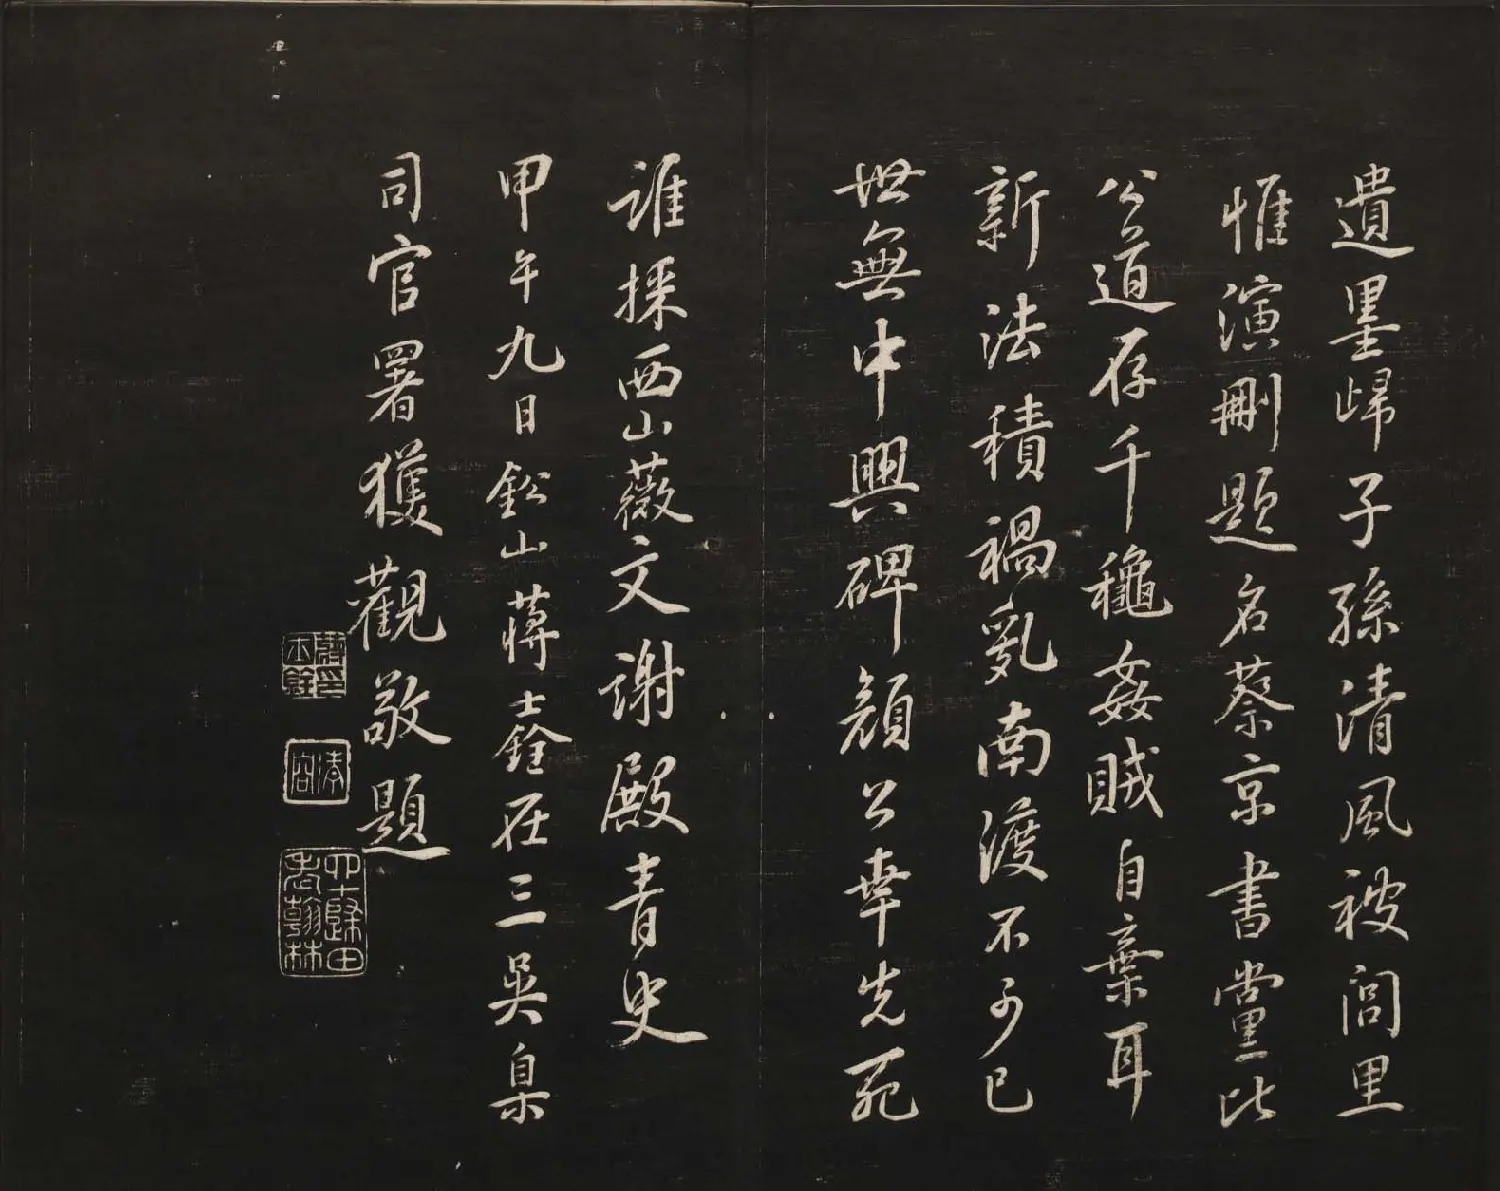 遺墨歸子孫清風被閭里
惟演刪題名蔡京書黨比
公道存千龝姦賊自棄耳
新法積禍亂南渡不可已
世無中興碑顔公幸先死
誰採西山薇文謝殿青史
甲午九日鉛山蔣士銓在三吳臬
司官署獲觀敬題